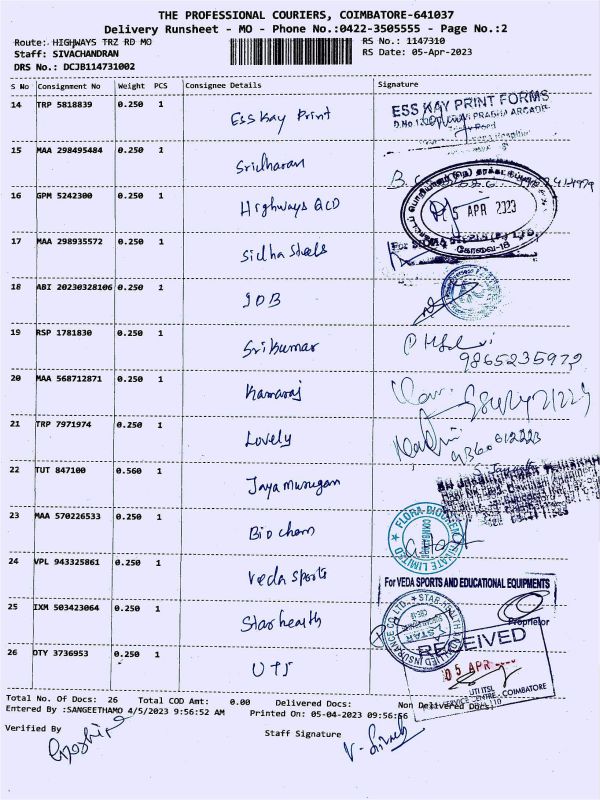 THE PROFESSIONAL COURIERS, COIMBATORE-641037
Delivery Runsheet - MO - Phone No.:0422-3505555 - Page No.:2
Route: HIGHWAYS TRZ RD MO
RS No.: 1147310
Staff: SIVACHANDRAN
RS Date: 05-Apr-2023
DRS No.: DCJB114731002
S No Consignment No Weight PCS Consignee Details Signature
14 TRP 5818839 0.250 1 Ess Kay Print
ESS KAY PRINT FORMS
15 MAA 298495484 0.250 1 Sridharan
16 GPM 5242300 0.250 1 Highways QCD
5 APR 2023
கோவை-18
17 MAA 298935572 0.250 1 Sidha Steels
For
18 ABI 20230328106 0.250 1 IOB
19 RSP 1781830 0.250 1 Srikumar
9865235972
20 MAA 568712871 0.250 1 Kamaraj
21 TRP 7971974 0.250 1 Lovely
9360612223
22 TUT 847100 0.560 1 Jayamurugan
23 MAA 570226533 0.250 1 Biochem
FLORA BIOCHEM PRIVATE LIMITED
COIMBATORE
24 VPL 943325861 0.250 1 Veda sports
For VEDA SPORTS AND EDUCATIONAL EQUIPMENTS
Proprietor
25 IXM 503423064 0.250 1 Star health
STAR HEALTH AND ALLIED INSURANCE CO LTD
STAR
26 DTY 3736953 0.250 1 UTI
RECEIVED
05 APR
UTI ITSL
SERVICE CENTRE, COIMBATORE
Total No. Of Docs: 26 Total COD Amt: 0.00 Delivered Docs: Non Delivered Docs:
Entered By :SANGEETHAMO 4/5/2023 9:56:52 AM Printed On: 05-04-2023 09:56:56
Verified By
Staff Signature